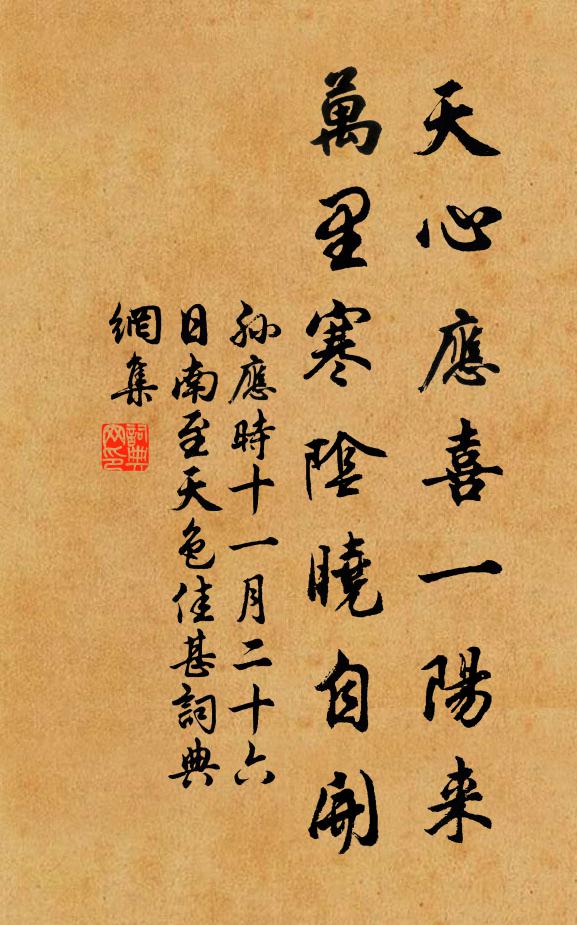 天心應喜一陽来
萬里寒陰曉自開
孫應時十一月二十六
日南至天色佳甚詞典
網集
詞典
网印